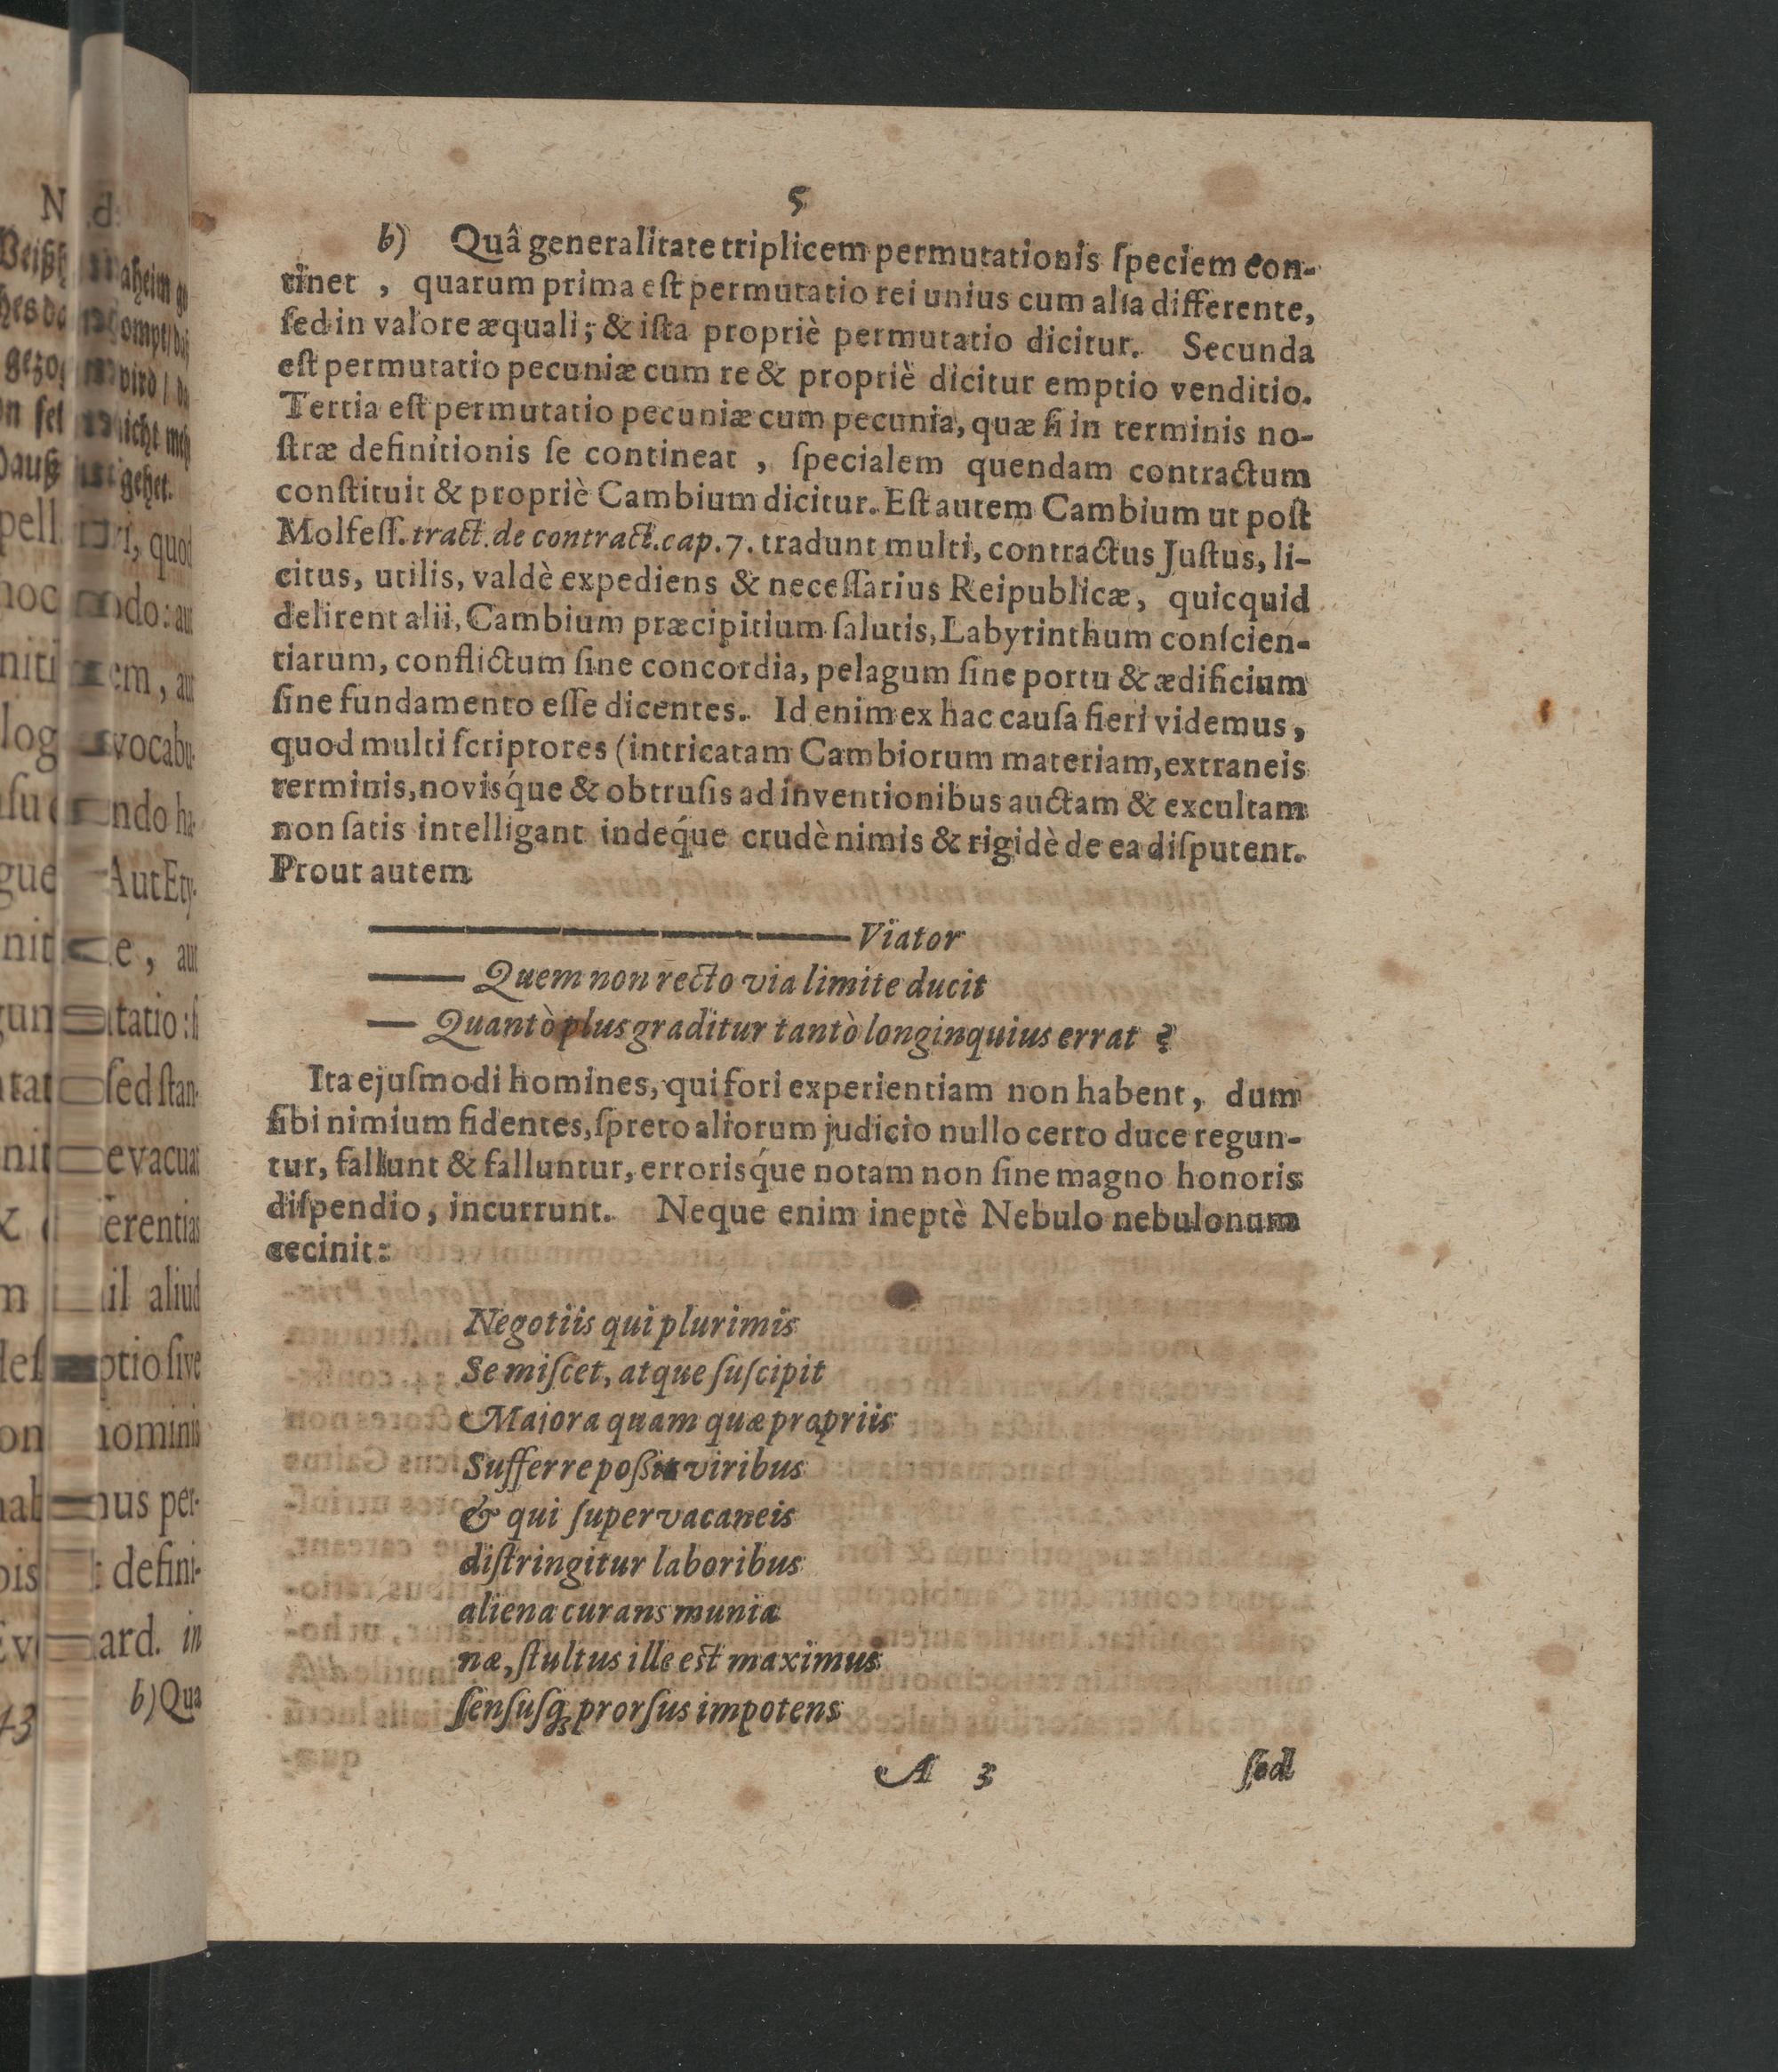 5
b) Quâ generalitate triplicem permutationis ſpeciem con-
tinet , quarum prima eſt permutatio rei unius cum alia differente,
ſed in valore æquali; & iſta propriè permutatio dicitur. Secunda
eſt permutatio pecuniæ cum re & propriè dicitur emptio venditio.
Tertia eſt permutatio pecuniæ cum pecunia, quæ ſi in terminis no-
ſtræ definitionis ſe contineat , ſpecialem quendam contractum
conſtituit & propriè Cambium dicitur. Eſt autem Cambium ut poſt
Molfeſſ. tract. de contract. cap. 7. tradunt multi, contractus Juſtus, li-
citus, utilis, valdè expediens & neceſſarius Reipublicæ, quicquid
delirent alii, Cambium præcipitium ſalutis, Labyrinthum conſcien-
tiarum, conflictum ſine concordia, pelagum ſine portu & ædificium
ſine fundamento eſſe dicentes. Id enim ex hac cauſa fieri videmus,
quod multi ſcriptores (intricatam Cambiorum materiam, extraneis
terminis, novisq́ue & obtruſis ad inventionibus auctam & excultam
non ſatis intelligant indeq́ue crudè nimis & rigidè de ea diſputent.
Prout autem
————— Viator
—— Quem non recto via limite ducit
— Quantò plus graditur tantò longinquius errat ?
Ita ejuſmodi homines, qui fori experientiam non habent, dum
ſibi nimium fidentes, ſpreto aliorum judicio nullo certo duce regun-
tur, fallunt & falluntur, errorisq́ue notam non ſine magno honoris
diſpendio, incurrunt. Neque enim ineptè Nebulo nebulonum
cecinit:
Negotiis qui plurimis
Se miſcet, atque ſuſcipit
Majora quam quæ propriis
Sufferre poßit viribus
& qui ſupervacaneis
diſtringitur laboribus
aliena curans munia
næ, ſtultus ille eſt maximus
ſenſuſq; prorſus impotens
A 3 ſed